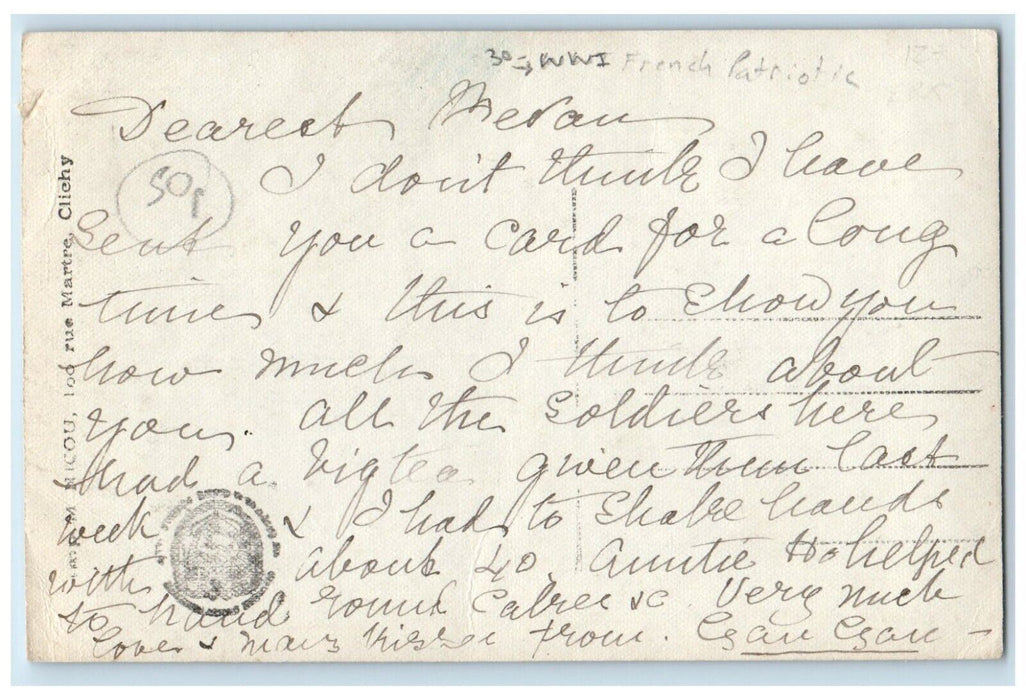 30 → WWI French Patriotic
Dearest
I don't think I have
sent you a card for a long
time & this is to show you
how much I think about
you. All the Soldiers here
had a big tea given them last
week & I had to shake hands
with about 40. Auntie helped
to hand round Cakes &c. Very much
love & many kisses from.
50s
NICOU, 100 rue Martre, Clichy